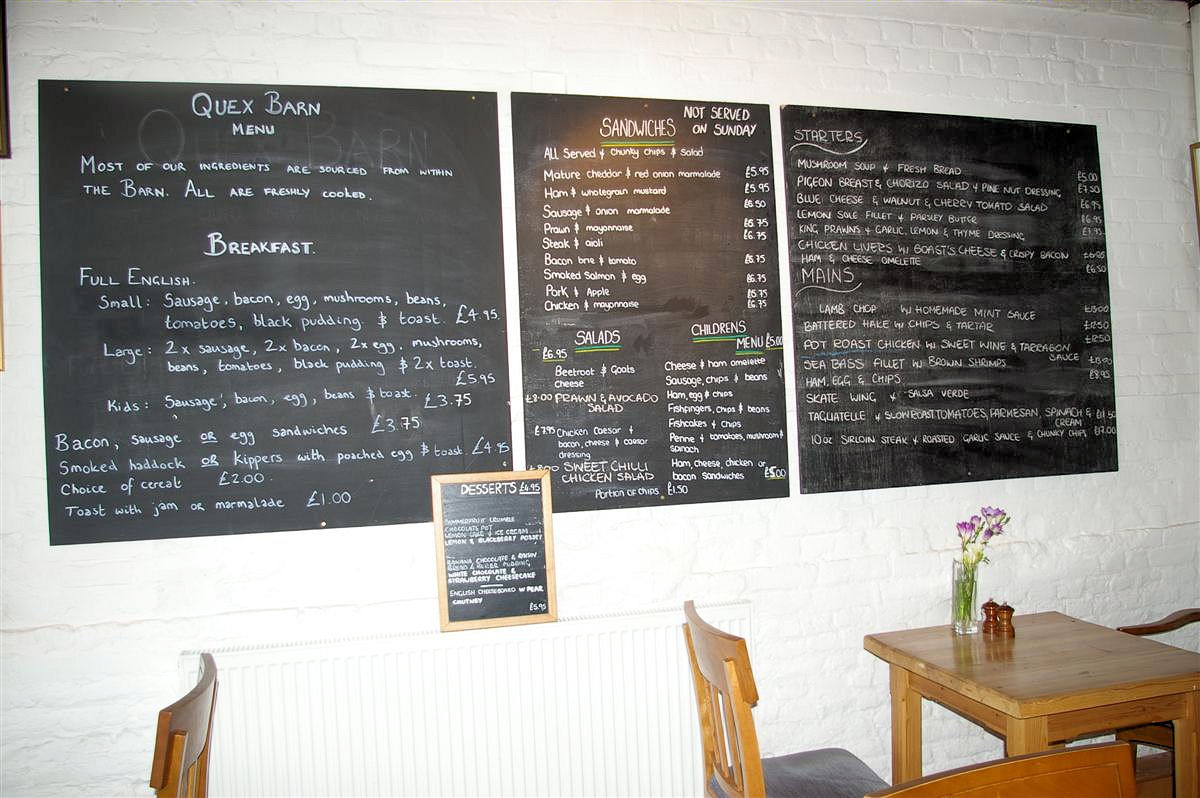 QUEX BARN
MENU
MOST OF OUR INGREDIENTS ARE SOURCED FROM WITHIN
THE BARN. ALL ARE FRESHLY COOKED.
BREAKFAST.
FULL ENGLISH.
Small: Sausage, bacon, egg, mushrooms, beans,
tomatoes, black pudding & toast. £4.95
Large: 2x sausage, 2x bacon, 2x egg. mushrooms,
beans, tomatoes, black pudding & 2x toast.
£5.95
Kids: Sausage, bacon, egg, beans & toast. £3.75
Bacon, sausage or egg sandwiches £3.75
Smoked haddock or kippers with poached egg & toast £4.95
Choice of cereal £2.00
Toast with jam or marmalade £1.00
SANDWICHES
NOT SERVED
ON SUNDAY
ALL Served & Chunky Chips & Salad
Mature cheddar & red onion marmalade £5.95
Ham & wholegrain mustard £5.95
Sausage & onion marmalade £6.50
Prawn & mayonnaise £6.75
Steak & aioli £6.75
Bacon brie & tomato £6.75
Smoked Salmon & egg £6.75
Pork & Apple £5.75
Chicken & mayonnaise £6.75
SALADS
£6.95
Beetroot & Goats
cheese
£8.00 PRAWN & AVOCADO
SALAD
£7.95 Chicken Caesar &
bacon, cheese & caesar
dressing
£8.00 SWEET CHILLI
CHICKEN SALAD
CHILDRENS
MENU £5.00
Cheese & ham omelette
Sausage, chips & beans
Ham, egg & chips
Fishfingers, chips & beans
Fishcakes & chips
Penne & tomatoes, mushroom &
spinach
Ham, cheese, chicken or
bacon sandwiches £5.00
Portion of chips £1.50
STARTERS
MUSHROOM SOUP & FRESH BREAD £5.00
PIGEON BREAST & CHORIZO SALAD & PINE NUT DRESSING £7.50
BLUE CHEESE & WALNUT & CHERRY TOMATO SALAD £6.95
LEMON SOLE FILLET & PARSLEY BUTTER £6.95
KING PRAWNS & GARLIC, LEMON & THYME DRESSING £7.95
CHICKEN LIVERS W/ GOAST'S CHEESE & CRISPY BACON £6.95
HAM & CHEESE OMELETTE £6.50
MAINS
LAMB CHOP W/ HOMEMADE MINT SAUCE
BATTERED HAKE W/ CHIPS & TARTAR £12.50
POT ROAST CHICKEN W. SWEET WINE & TARRAGON £12.50
SAUCE
SEA BASS FILLET W/ BROWN SHRIMPS
HAM, EGG & CHIPS £8.95
SKATE WING & SALSA VERDE
TAGLIATELLE & SLOWROAST TOMATOES, PARMESAN, SPINACH &
CREAM
10oz SIRLOIN STEAK & ROASTED GARLIC SAUCE & CHUNKY CHIPS £17.00
DESSERTS £4.95
SUMMERFRUIT CRUMBLE
CHOCOLATE POT
LEMON CAKE & ICE CREAM
LEMON & BLACKBERRY POSSET
BANANA, CHOCOLATE & RAISIN
BREAD & BUTTER PUDDING
WHITE CHOCOLATE &
STRAWBERRY CHEESECAKE
ENGLISH CHEESEBOARD W PEAR
CHUTNEY
£5.95